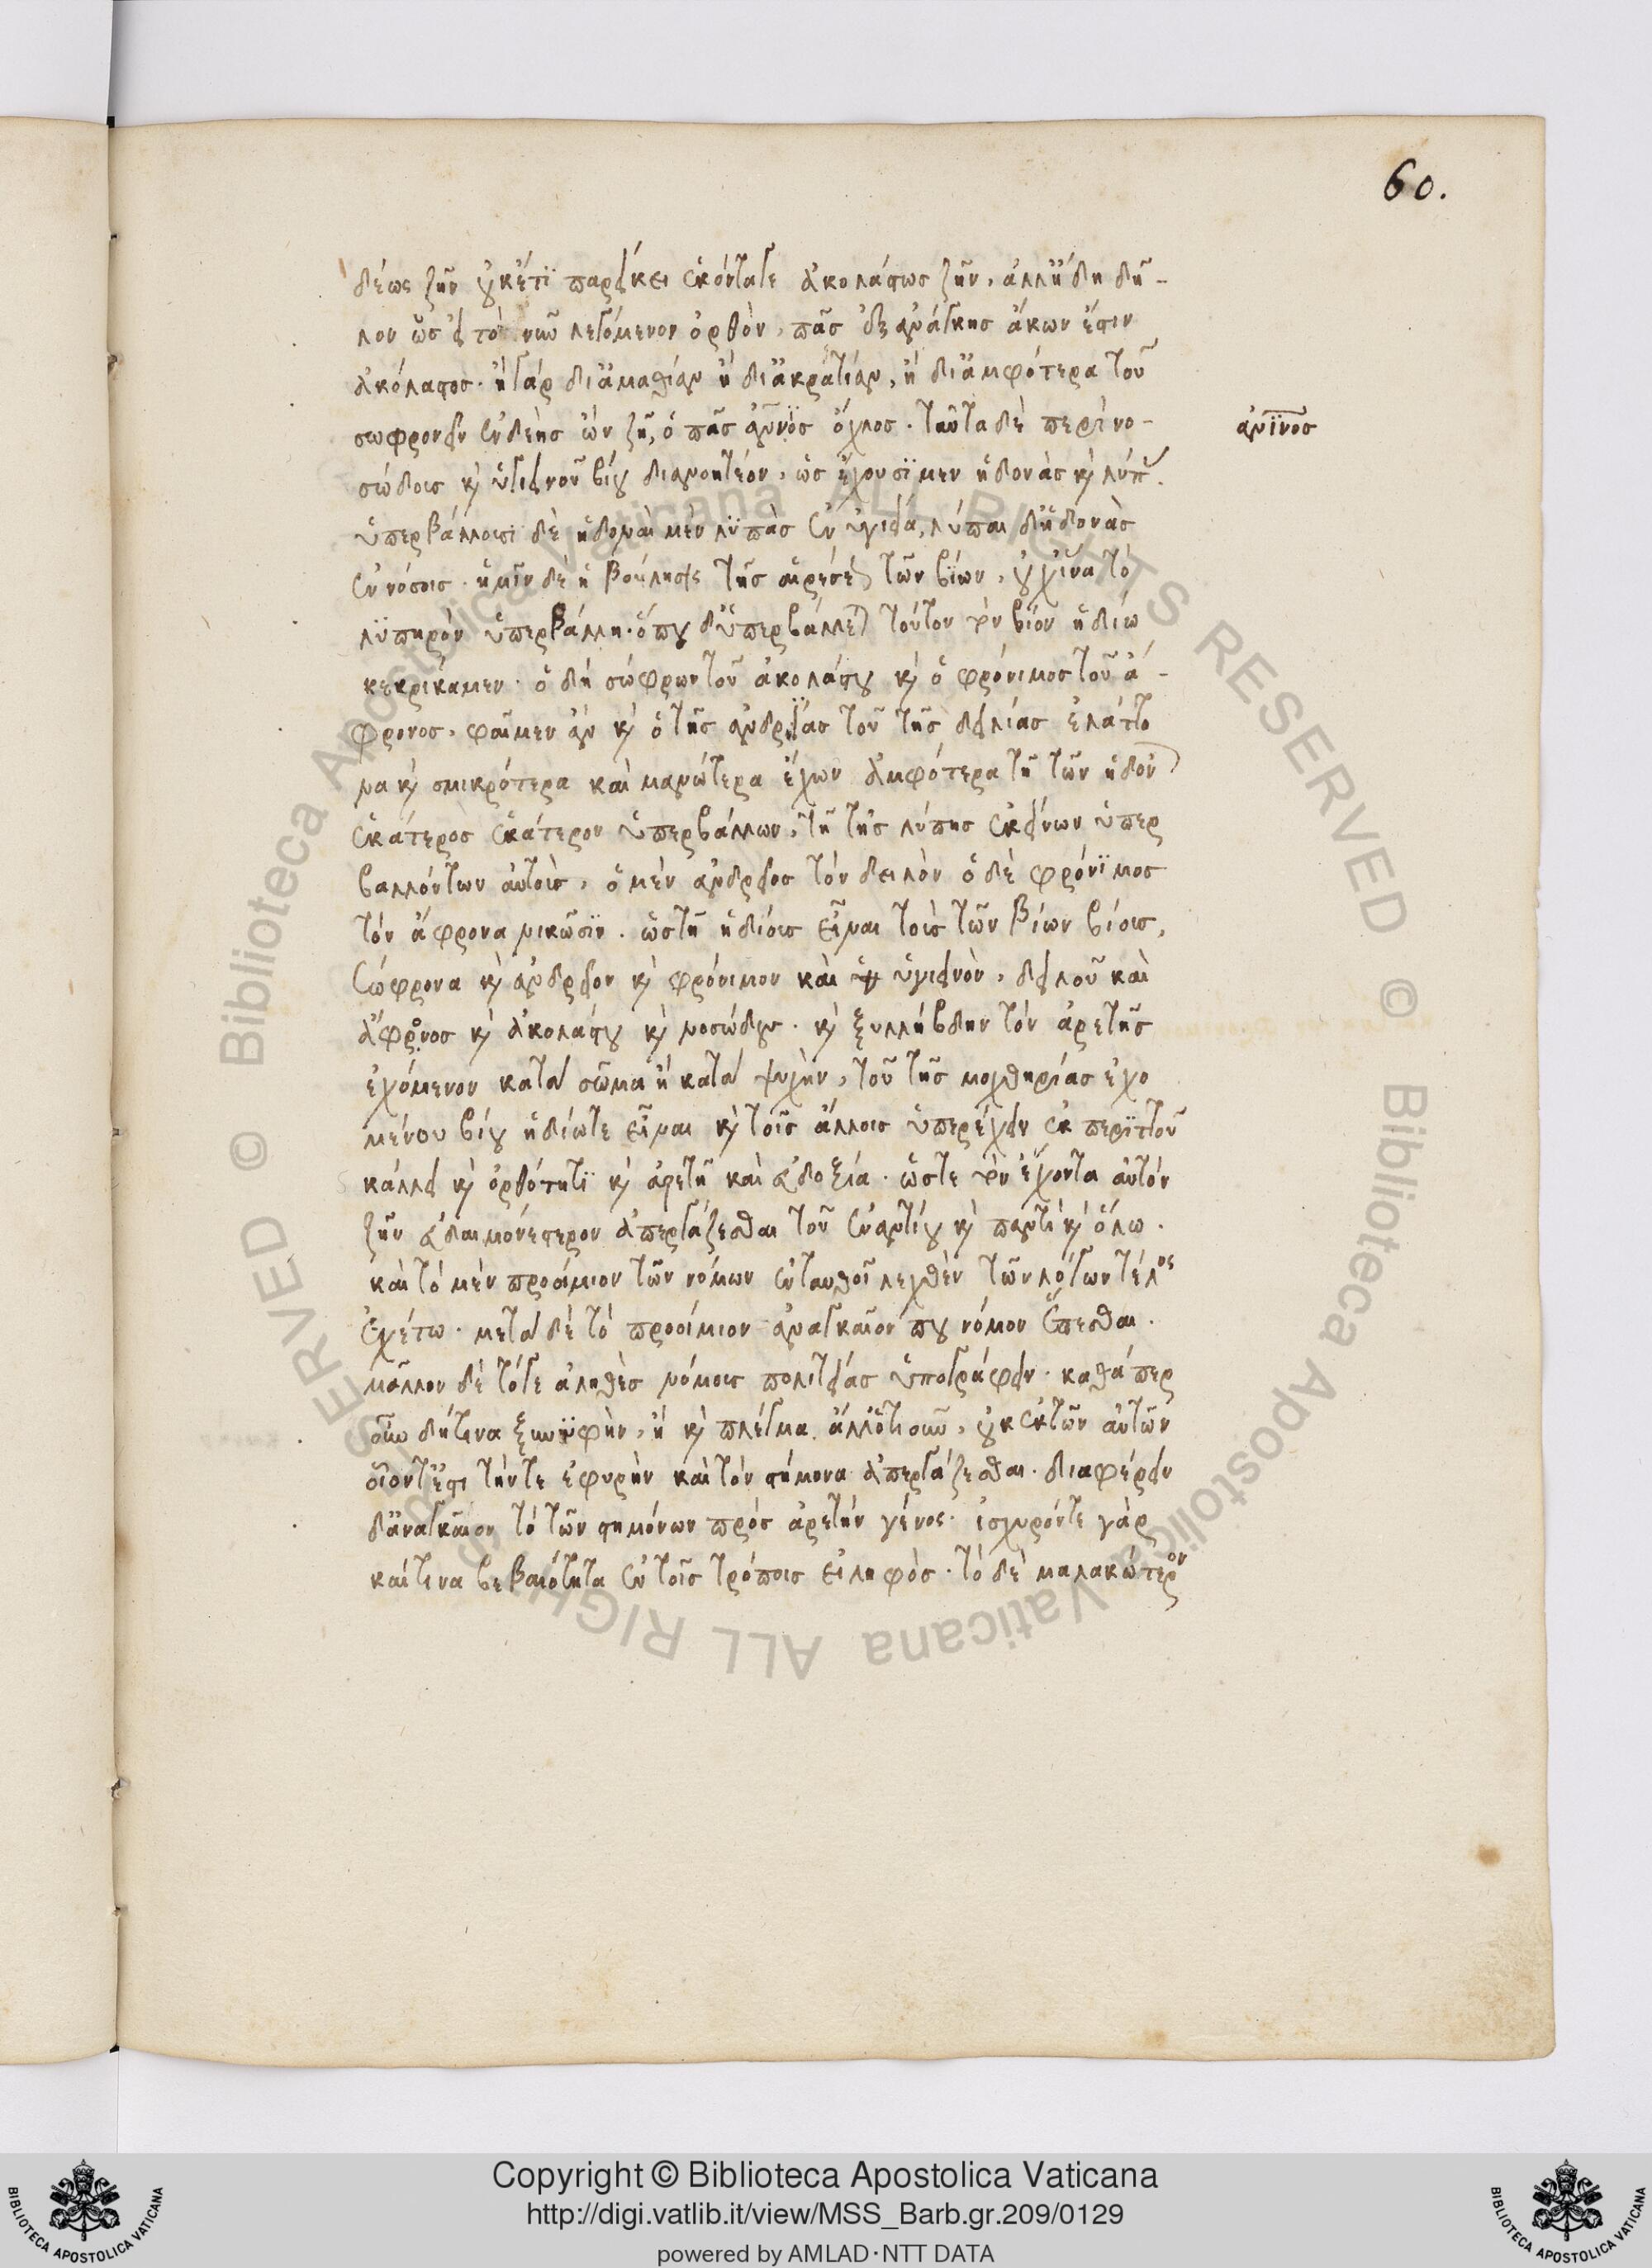 60.
δέως ζῆν οὐκέτι παρείκει ἑκόντα γε ἀκολάστως ζῆν, ἀλλ' ἤδη δῆ-
λον ὡς εἰ τὸ νῦν λεγόμενον ὀρθὸν, πᾶς ἐξ ἀνάγκης ἄκων ἐστιν
ἀκόλαστος. ἢ γάρ δι' ἀμαθίαν ἢ δι' ἀκρατίαν, ἢ δι' ἀμφότερα τοῦ
σωφρονεῖν ἐνδεὴς ὢν ζῆ, ὁ πᾶς ἀνινος ὄχλος. ταῦτα δὲ περὶ νο-
ἀνινος
σώδοις καὶ ὑγιεινοῦ βίου διανοητέον, ὡς ἔχουσι μεν ἡδονὰς καὶ λύπ.
ὑπερβάλλουσι δὲ ἡδοναὶ μὲν λύπας ἐν ὑγιεία, λύπαι δ' ἡδονὰς
ἐν νόσοις. ἡμῖν δὲ ἡ βούλησις τῆς αἱρέσεως τῶν βίων, οὐχ ἵνα τὸ
λυπηρὸν ὑπερβάλλη. ὅπου δ' ὑπερβάλλεται τοῦτον τὸν βίον ἡδίω
κεκρίκαμεν. ὁ δὴ σώφρων τοῦ ἀκολάστου καὶ ὁ φρόνιμος τοῦ ἄ-
φρονος, φαῖμεν ἂν καὶ ὁ τῆς ἀνδρίας τοῦ τῆς δειλίας ἐλάττο
να καὶ σμικρότερα καὶ μανώτερα ἔχων ἀμφότερα τῆ τῶν ἡδονῶν
ἑκάτερος ἑκάτερον ὑπερβάλλων, τῆ τῆς λύπης ἐκείνων ὑπερ
βαλλόντων αὐτοὺς, ὁ μὲν ἀνδρεῖος τὸν δειλὸν ὁ δὲ φρόνιμος
τὸν ἄφρονα νικῶσιν. ὥστη ἡδίους εἶναι τοὺς τῶν βίων βίους,
σώφρονα καὶ ἀνδρεῖον καὶ φρόνιμον καὶ ὑγιεινὸν, δειλοῦ καὶ
ἄφρονος καὶ ἀκολάστου καὶ νοσώδους. καὶ ξυλλήβδην τὸν ἀρετῆς
ἐχόμενον κατὰ σῶμα ἢ κατὰ ψυχὴν, τοῦ τῆς μοχθηρίας ἐχο
μένου βίου ἡδίω τε εἶναι καὶ τοῖς ἄλλοις ὑπερέχειν ἐκ περιττοῦ
κάλλει καὶ ὀρθότητι καὶ ἀρετῆ καὶ εὐδοξία. ὥστε τὸν ἔχοντα αὐτὸν
ζῆν εὐδαιμονέστερον ἀπεργάζεσθαι τοῦ ἐναντίου καὶ παντὶ καὶ ὅλω.
καὶ τὸ μὲν προοίμιον τῶν νόμων ἐνταυθοῖ λεχθὲν τῶν λόγων τέλος
ἐχέτω. μετὰ δὲ τὸ προοίμιον ἀναγκαῖον που νόμον ἕπεσθαι.
μᾶλλον δὲ τό γε ἀληθὲς νόμοις πολιτείας ὑπογράφειν. καθάπερ
οὖν δή τινα ξυνυφὴν, ἢ καὶ πλέγμα ἄλλ' ὁτιοῦν, οὐκ ἐκ τῶν αὐτῶν
οἷόντ' ἐστι τήν τε ἐφυρὴν καὶ τὸν στήμονα ἀπεργάζεσθαι. διαφέρειν
δ' ἀναγκαῖον τὸ τῶν στημόνων πρὸς ἀρετὴν γένος. ἰσχυρόν τε γὰρ
καί τινα βεβαιότητα ἐν τοῖς τρόποις εἰληφὸς. τὸ δὲ μαλακώτερον
Copyright © Biblioteca Apostolica Vaticana
http://digi.vatlib.it/view/MSS_Barb.gr.209/0129
powered by AMLAD·NTT DATA